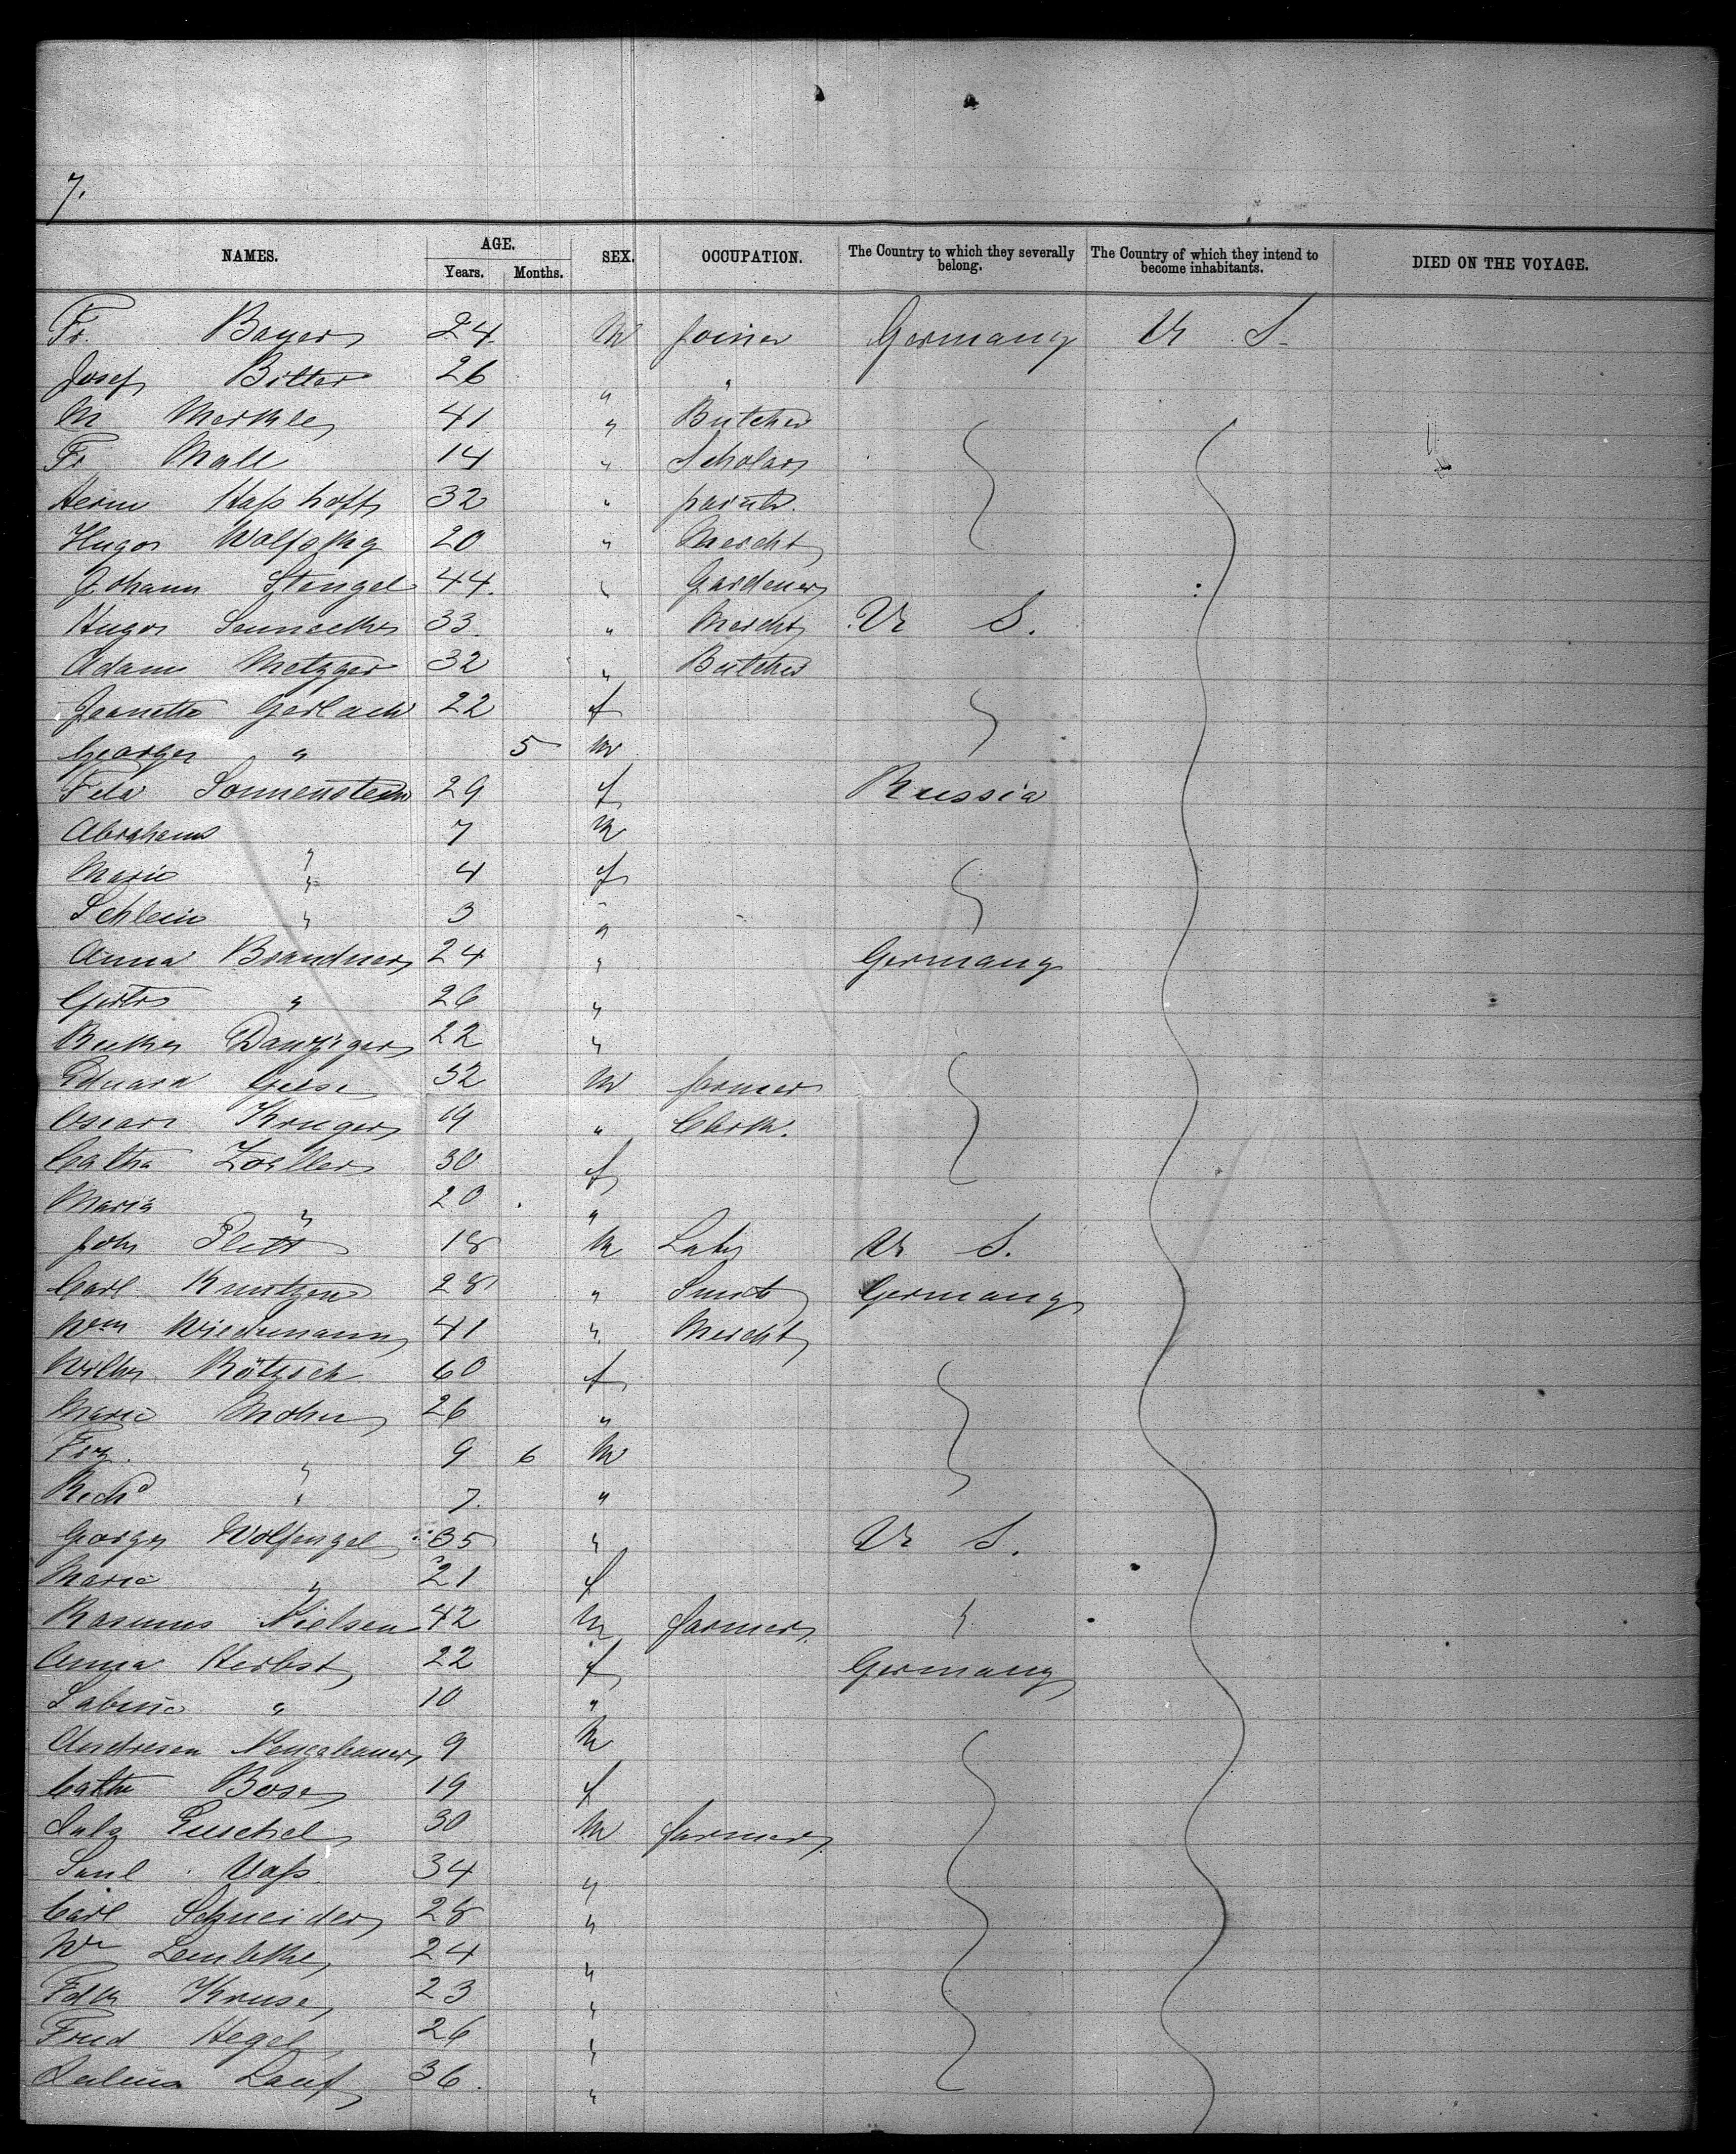 7.
NAMES. AGE. Years. Months. SEX. OCCUPATION. The Country to which they severally belong. The Country of which they intend to become inhabitants. DIED ON THE VOYAGE.
Fr. Bayer 24 M Joiner Germany U S.
Josef Bitter 26 " "
M Merkle 41 " Butcher
Fr Mall 14 " Scholar
Herm Haßhoff 32 "
Hugo 20 " Mercht
Johann Stengel 44. " Gardener
Hugo 33. " Mercht U S.
Adam Metzger 32 " Butcher
Jeanette Gerlach 22 f
George " 5 M
Sonnenstein 29 f Russia
Abraham " 7 M
Marie " 4 f
" 3 "
Anna Brandner 24 " Germany
" 26 "
Danziger 22 "
Eduard Giese 32 M farmer
Oscar Kruger 19 " Clerk.
Catha Zoeller 30 f
Maria " 20 "
Joh Plett 18 M Labr U S.
Carl Kuntzen 28 " Smith Germany
Wm Wiedemann 41 " Mercht
Wilhe Rötzsch 60 f
Marie Mohn 26 "
Frz. " 9 6 M
Rich^d " 7. "
George Wolfengel 35 " U S.
Marie " 21 f
Rasmus Nielsen 42 M farmer "
Anna Herbst 22 f Germany
Sabine " 10 "
Andreas Neugebauer 9 M
Cathe Bose 19 f
30 M farmer
Voß 34 "
Carl Schneider 28 "
Wm Lembke 24 "
Fdk Kruse 23 "
Fried Hegel 26 "
Lauf 36. "